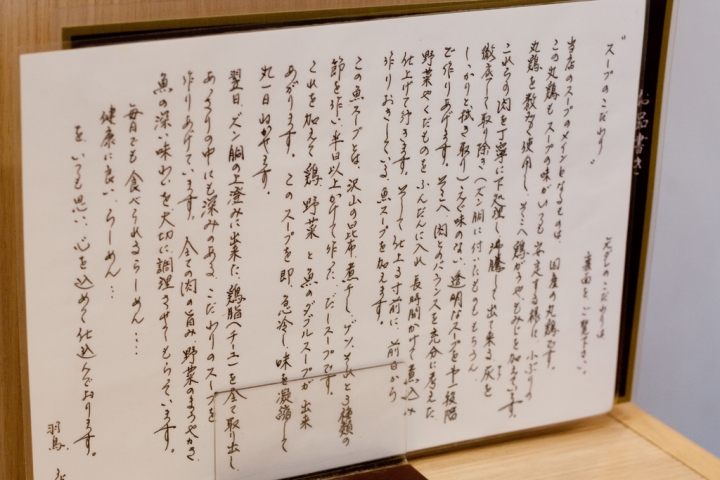 "スープのこだわり"
元ダレのこだわりは
裏面をご覧下さい。
当店のスープのメインとなるものは、国産の丸鶏です。
この丸鶏もスープの味がいつも安定する様に、小ぶりの
丸鶏を数みて使用し、そこへ鶏がらや、もみじを加えています。
これらの肉を丁寧に下処理し、沸騰して出て来る灰を
徹底して取り除き(ズン胴に付いたものももちろん
しっかりと拭き取り)えぐ味のない透明なスープを中一段階
で作りあげます。そこへ、肉とのバランスを充分に考えた
野菜やくだものをふんだんに入れ、長時間かけて煮込み
仕上げて行きます。そして仕上る寸前に、前日から
作りおきしている、魚スープを加えます。
この魚スープとは、沢山の昆布、煮干し、ゲンコツと3種類の
節を使い、半日以上かけて作った、だしスープです。
これを加えて鶏、野菜と魚のダブルスープが出来
あがります。このスープを即、急冷し、味を凝縮して
丸一日ねかせます。
翌日、ズン胴の上澄みに出来た、鶏脂(チー油)を全て取り出し、
あっさりの中にも深みのある、こだわりのスープを
作りあげています。全ての肉の旨み、野菜のまろやかさ、
魚の深い味わいを大切に調理させてもらっています。
毎日でも食べられるらーめん・・・
健康に良い、らーめん・・・
を、いつも思い、心を込めて仕込んでおります。
お品書き